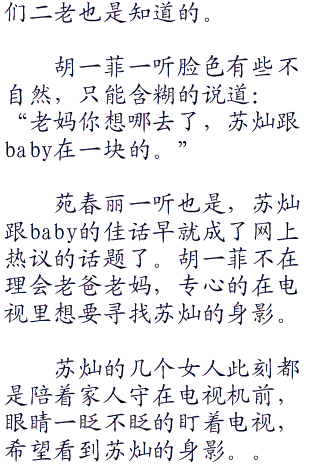 们二老也是知道的。
胡一菲一听脸色有些不
自然，只能含糊的说道：
“老妈你想哪去了，苏灿跟
baby在一块的。”
苑春丽一听也是，苏灿
跟baby的佳话早就成了网上
热议的话题了。胡一菲不在
理会老爸老妈，专心的在电
视里想要寻找苏灿的身影。
苏灿的几个女人此刻都
是陪着家人守在电视机前，
眼睛一眨不眨的盯着电视，
希望看到苏灿的身影。。